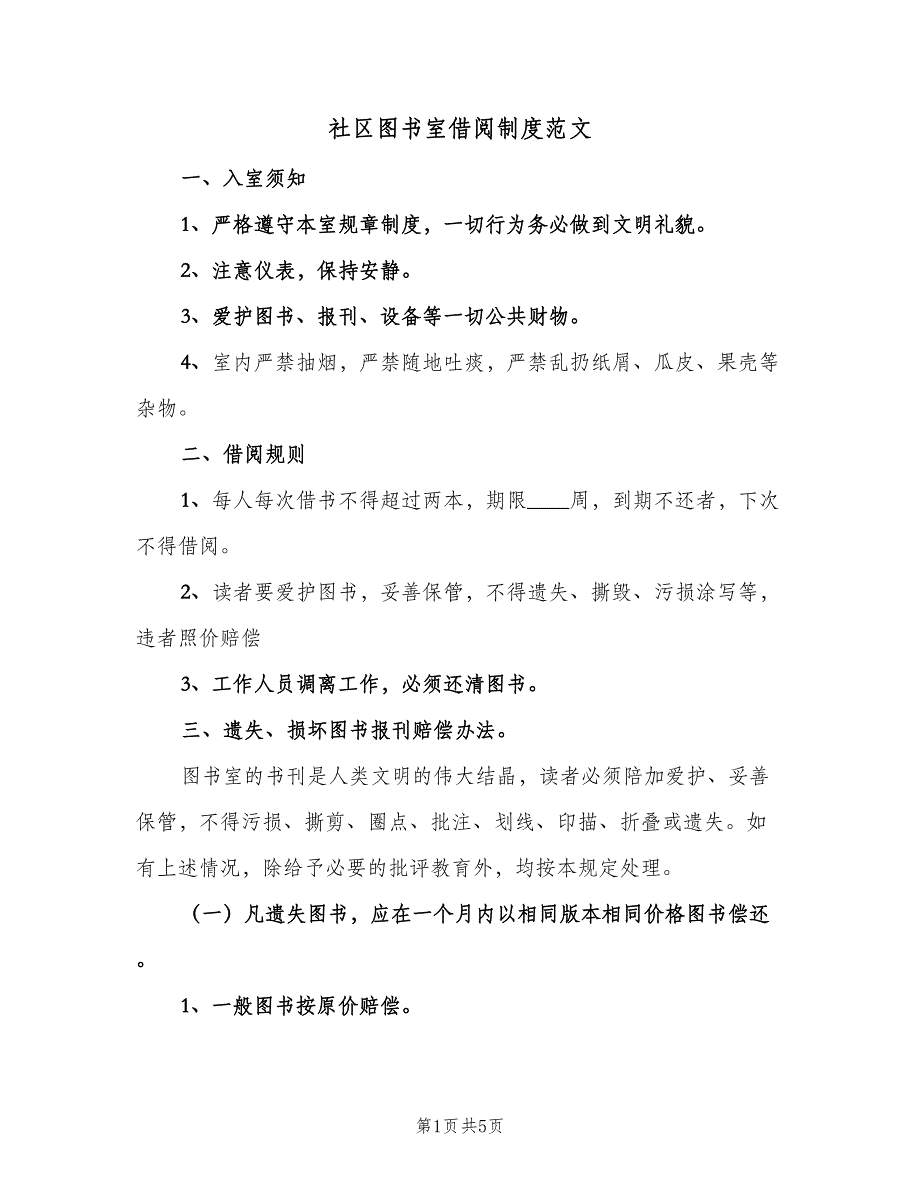 社区图书室借阅制度范文
一、入室须知
1、严格遵守本室规章制度，一切行为务必做到文明礼貌。
2、注意仪表，保持安静。
3、爱护图书、报刊、设备等一切公共财物。
4、室内严禁抽烟，严禁随地吐痰，严禁乱扔纸屑、瓜皮、果壳等
杂物。
二、借阅规则
1、每人每次借书不得超过两本，期限____周，到期不还者，下次
不得借阅。
2、读者要爱护图书，妥善保管，不得遗失、撕毁、污损涂写等，
违者照价赔偿
3、工作人员调离工作，必须还清图书。
三、遗失、损坏图书报刊赔偿办法。
图书室的书刊是人类文明的伟大结晶，读者必须陪加爱护、妥善
保管，不得污损、撕剪、圈点、批注、划线、印描、折叠或遗失。如
有上述情况，除给予必要的批评教育外，均按本规定处理。
（一）凡遗失图书，应在一个月内以相同版本相同价格图书偿还
。
1、一般图书按原价赔偿。
第1页共5页